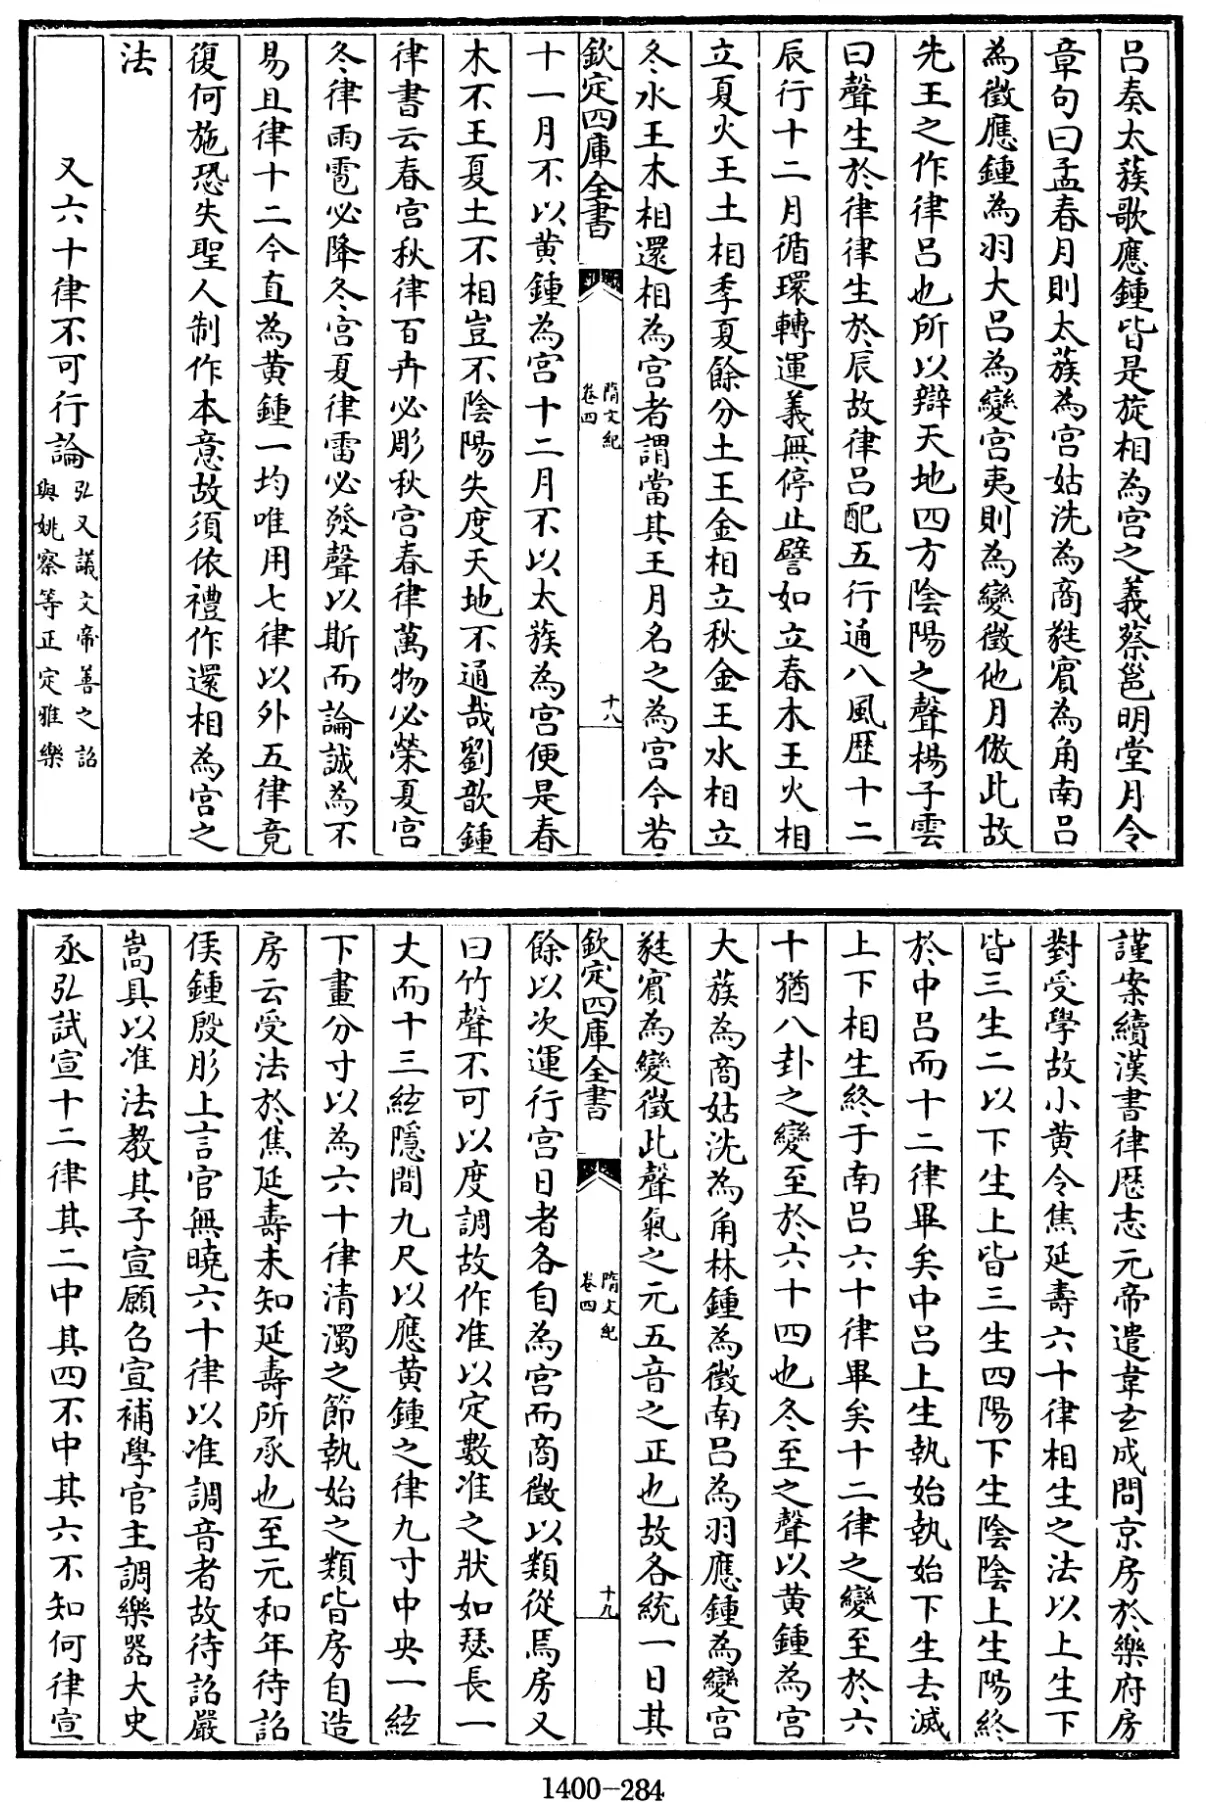 呂奏太蔟歌應鍾皆是旋相為宫之義蔡邕明堂月令
章句曰孟春月則太蔟為宫姑洗為商蕤賔為角南呂
為徵應鍾為羽大呂為變宫夷則為變徵他月倣此故
先王之作律呂也所以辯天地四方陰陽之聲楊子雲
曰聲生於律律生於辰故律呂配五行通八風歴十二
辰行十二月循環轉運義無停止譬如立春木王火相
立夏火王土相季夏餘分土王金相立秋金王水相立
冬水王木相還相為宫者謂當其王月名之為宫今若
欽定四庫全書
隋文紀
卷四
十八
十一月不以黄鍾為宫十二月不以太蔟為宫便是春
木不王夏土不相豈不陰陽失度天地不通哉劉歆鍾
律書云春宫秋律百卉必彫秋宫春律萬物必榮夏宫
冬律雨雹必降冬宫夏律雷必發聲以斯而論誠為不
易且律十二今直為黄鍾一均唯用七律以外五律竟
復何施恐失聖人制作本意故須依禮作還相為宫之
法
又六十律不可行論弘又議文帝善之詔
與姚察等正定雅樂
謹案續漢書律歴志元帝遣韋玄成問京房於樂府房
對受學故小黄令焦延壽六十律相生之法以上生下
皆三生二以下生上皆三生四陽下生陰陰上生陽終
於中呂而十二律畢矣中呂上生執始執始下生去滅
上下相生終于南呂六十律畢矣十二律之變至於六
十猶八卦之變至於六十四也冬至之聲以黄鍾為宫
大蔟為商姑洗為角林鍾為徵南呂為羽應鍾為變宫
蕤賔為變徵此聲氣之元五音之正也故各統一日其
欽定四庫全書
隋文紀
卷四
十九
餘以次運行宫日者各自為宫而商徵以類從焉房又
曰竹聲不可以度調故作准以定數准之狀如瑟長一
丈而十三絃隱間九尺以應黄鍾之律九寸中央一絃
下畫分寸以為六十律清濁之節執始之類皆房自造
房云受法於焦延壽未知延壽所承也至元和年待詔
侯鍾殷肜上言官無曉六十律以准調音者故待詔嚴
嵩具以准法教其子宣願召宣補學官主調樂器大史
丞弘試宣十二律其二中其四不中其六不知何律宣
1400-284